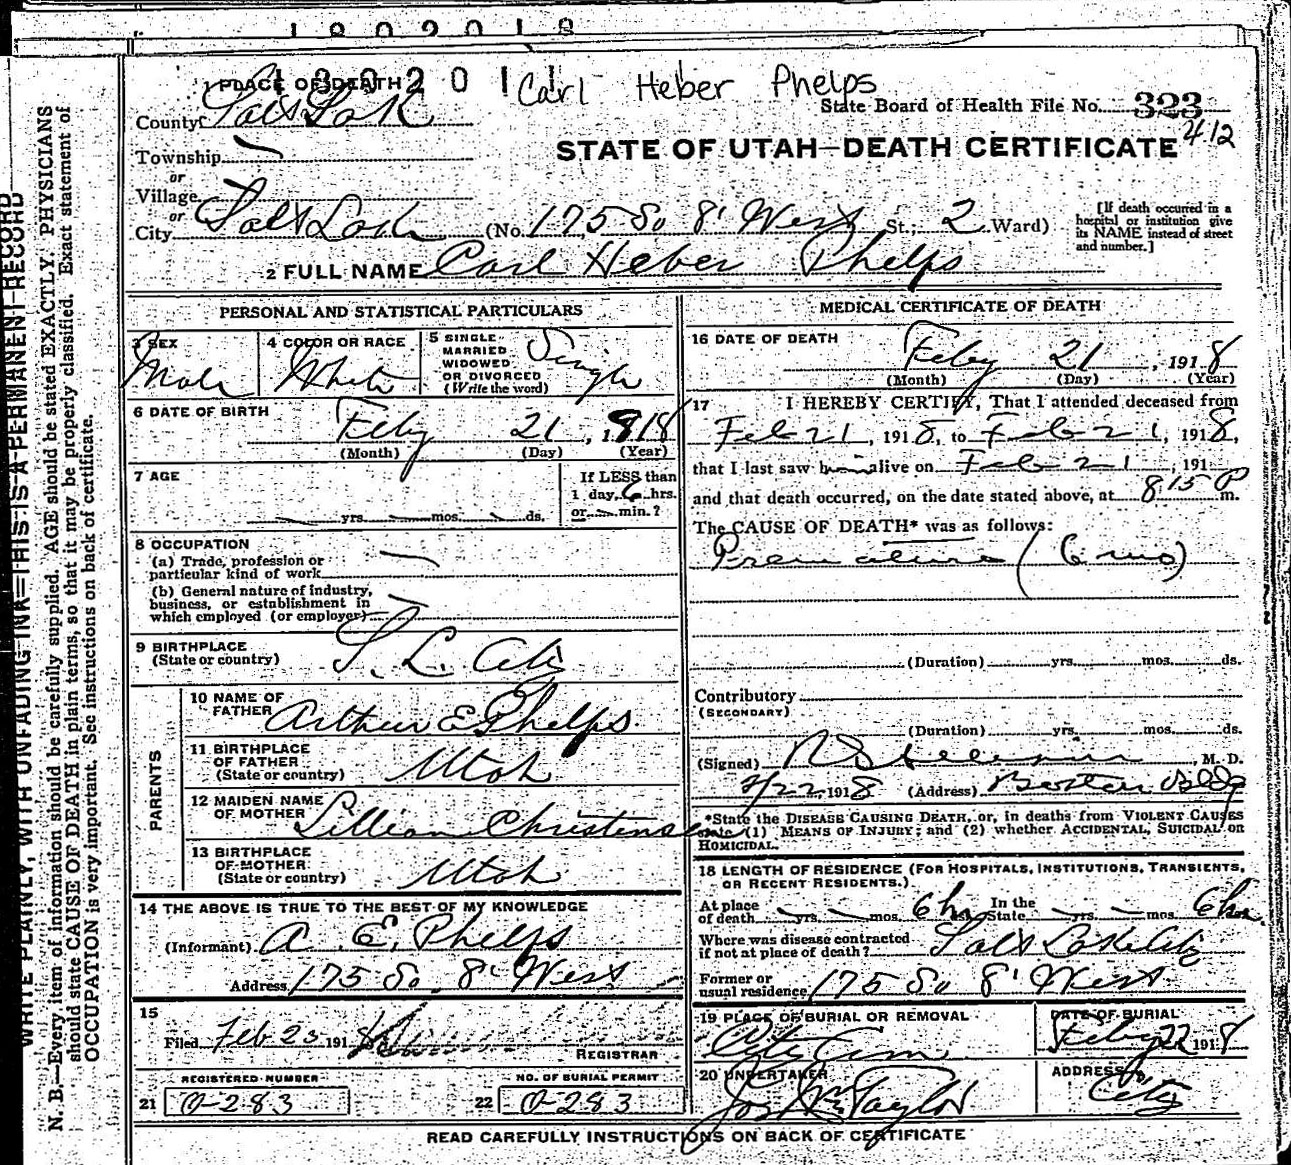 1802018
180201
Carl Heber Phelps
1 PLACE OF DEATH
State Board of Health File No. 323
412
County Salt Lake
STATE OF UTAH—DEATH CERTIFICATE
Township
or
Village
or
City Salt Lake (No. 175 So 8' West St.; 2 Ward)
[If death occurred in a
hospital or institution give
its NAME instead of street
and number.]
2 FULL NAME Carl Heber Phelps
PERSONAL AND STATISTICAL PARTICULARS
3 SEX
Male
4 COLOR OR RACE
White
5 SINGLE
MARRIED
WIDOWED
OR DIVORCED
(Write the word)
Single
6 DATE OF BIRTH
Feby 21, 1918
(Month) (Day) (Year)
7 AGE
yrs. mos. ds.
If LESS than
1 day, 6 hrs.
or min.?
8 OCCUPATION
(a) Trade, profession or
particular kind of work
(b) General nature of industry,
business, or establishment in
which employed (or employer)
9 BIRTHPLACE
(State or country)
S. L. City
PARENTS
10 NAME OF
FATHER
Arthur E Phelps
11 BIRTHPLACE
OF FATHER
(State or country)
Utah
12 MAIDEN NAME
OF MOTHER
Lillian Christensen
13 BIRTHPLACE
OF MOTHER
(State or country)
Utah
14 THE ABOVE IS TRUE TO THE BEST OF MY KNOWLEDGE
(Informant) A. E. Phelps
Address 175 So. 8' West
15
Filed Feb 23 1918
REGISTRAR
REGISTERED NUMBER
21 O-283
NO. OF BURIAL PERMIT
22 O-283
MEDICAL CERTIFICATE OF DEATH
16 DATE OF DEATH
Feby 21, 1918
(Month) (Day) (Year)
17 I HEREBY CERTIFY, That I attended deceased from
Feb 21, 1918, to Feb 21, 1918,
that I last saw him alive on Feb 21, 191
and that death occurred, on the date stated above, at 8 15 P m.
The CAUSE OF DEATH* was as follows:
Premature (6 mo)
(Duration) yrs. mos. ds.
Contributory
(SECONDARY)
(Duration) yrs. mos. ds.
(Signed) , M. D.
2/22, 1918 (Address) Boston Bldg
*State the DISEASE CAUSING DEATH, or, in deaths from VIOLENT CAUSES
state (1) MEANS OF INJURY; and (2) whether ACCIDENTAL, SUICIDAL or
HOMICIDAL.
18 LENGTH OF RESIDENCE (FOR HOSPITALS, INSTITUTIONS, TRANSIENTS,
OR RECENT RESIDENTS.)
At place
of death yrs. mos. 6 hrs
In the
State yrs. mos. 6 hrs
Where was disease contracted
if not at place of death? Salt Lake City
Former or
usual residence 175 So 8' West
19 PLACE OF BURIAL OR REMOVAL
City Cem
DATE OF BURIAL
Feby 22 1918
20 UNDERTAKER
Jos Wm Taylor
ADDRESS
City
READ CAREFULLY INSTRUCTIONS ON BACK OF CERTIFICATE
WRITE PLAINLY, WITH UNFADING INK—THIS IS A PERMANENT RECORD
N. B.—Every item of information should be carefully supplied. AGE should be stated EXACTLY. PHYSICIANS
should state CAUSE OF DEATH in plain terms, so that it may be properly classified. Exact statement of
OCCUPATION is very important. See instructions on back of certificate.